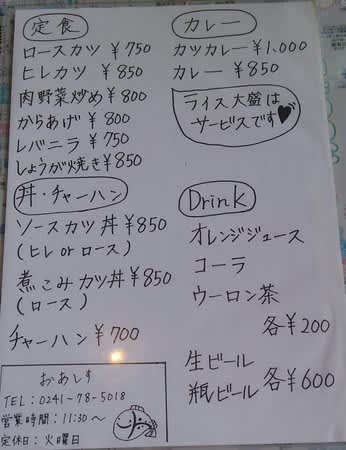 定食
ロースカツ ¥750
ヒレカツ ¥850
肉野菜炒め ¥800
からあげ ¥800
レバニラ ¥750
しょうが焼き ¥850
丼・チャーハン
ソースカツ丼 ¥850
(ヒレorロース)
煮こみカツ丼 ¥850
(ロース)
チャーハン ¥700
おあしす
TEL:0241-78-5018
営業時間:11:30〜
定休日:火曜日
カレー
カツカレー ¥1,000
カレー ¥850
ライス大盛は
サービスです♥
Drink
オレンジジュース
コーラ
ウーロン茶
各¥200
生ビール
瓶ビール 各¥600